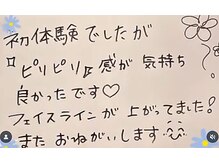 初体験でしたが
『ピリピリ』感が気持ち
良かったです♡
フェイスラインが上がってました!
またおねがいします